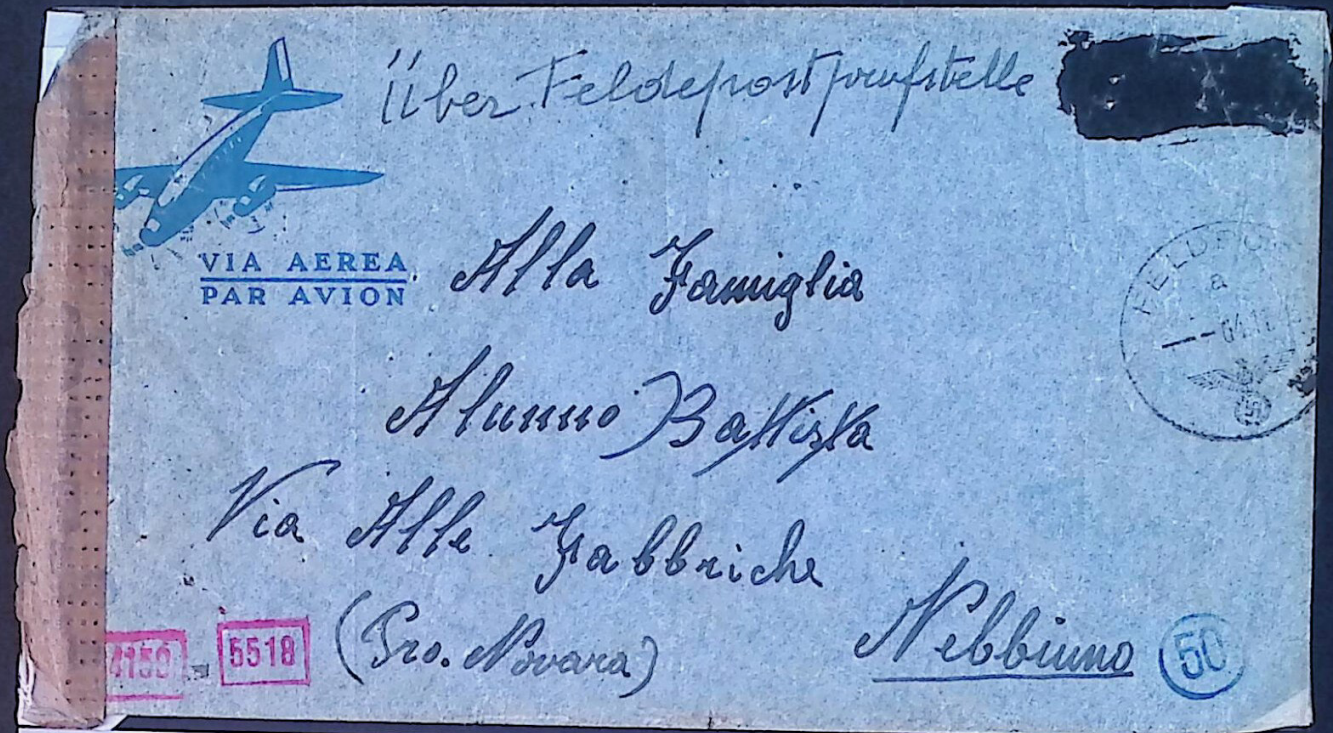 Über Feldepostprufstelle
VIA AEREA
PAR AVION
Alla Famiglia
Alunno Battista
Via Alle Fabbriche
(Pro. Novara)
Nebbiuno
FELDPO
a
4150
5518
50